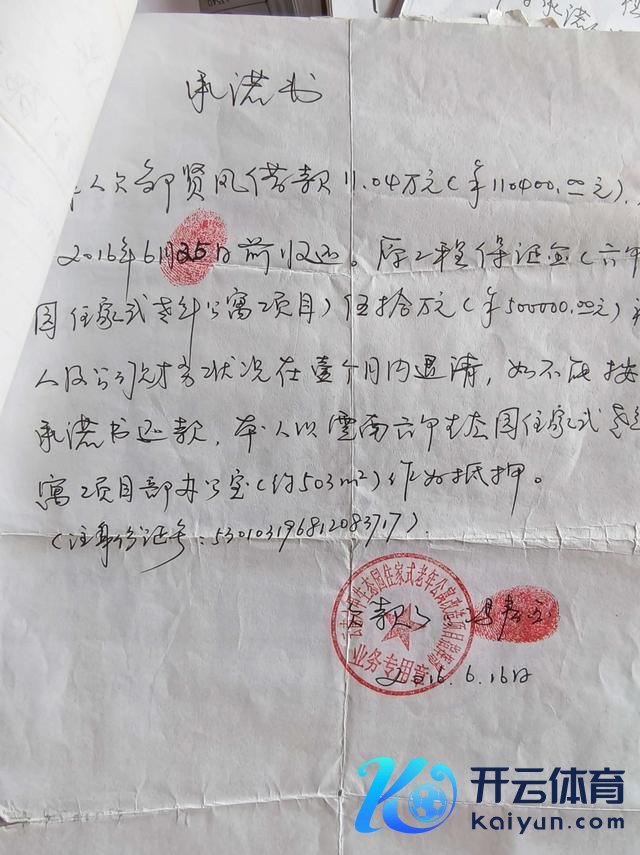 承诺书
本人欠部贤风借款11.04万元(¥110400.00元),
2016年6月25日前归还。原工程保证金(六甲
园住家式老年公寓项目)伍拾万元(¥500000.00元)
人及公司财务状况在壹个月内退清,如不能按
承诺书还款,本人以云南六甲生态园住家式老年
寓项目部办公室(约503m²)作为抵押。
(注身份证号:530103196812083717).
生态园住家式老年公寓改造项目
业务专用章
欠款人:
2016.6.16日
开云体育
kaiyun.com